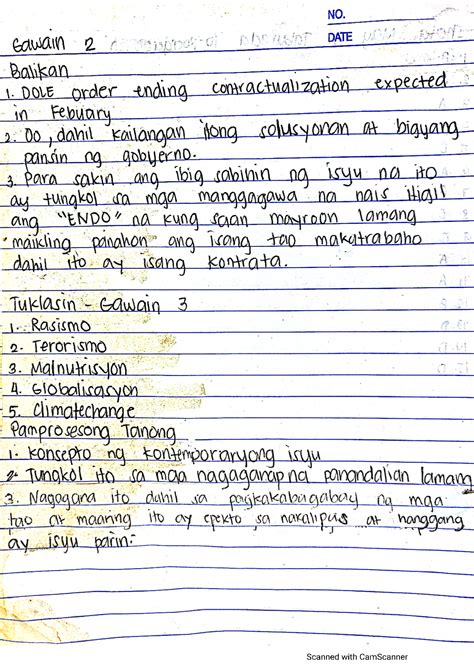 NO.
Gawain 2 DATE
Balikan
1. DOLE order ending contractualization expected
in Febuary
2. Oo, dahil kailangan ilong solusyonan at bigyang
pansin ng gobyerno.
3. Para sakin ang ibig sabihin ng isyu na ito
ay tungkol sa mga manggagawa na nais itigil
ang "ENDO" na kung saan mayroon lamang
maikling panahon ang isang tao makatrabaho
dahil ito ay isang kontrata.
Tuklasin - Gawain 3
1. Rasismo
2. Terorismo
3. Malnutrisyon
4. Globalisasyon
5. Climatechange
Pamprosesong Tanong
1. Konsepto ng kontemporaryong isyu
2. Tungkol ito sa mga nagaganap na panandalian lamang
3. Nagagana ito dahil sa ng mga
tao at maaring ito ay epekto sa nakalipas at hanggang
ay isyu parin.
Scanned with CamScanner